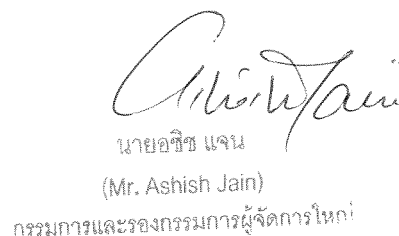 Ashish Jain
นายอชิช แจน
(Mr. Ashish Jain)
กรรมการและรองกรรมการผู้จัดการใหญ่